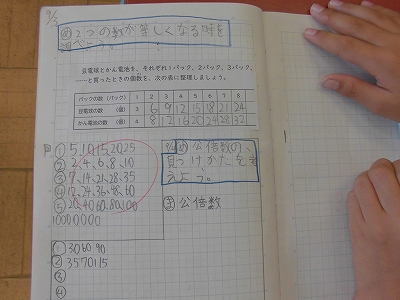 9/5
め 2つの数が等しくなる時を
調べよう。
豆電球とかん電池を、それぞれ1パック、2パック、3パック、
……と買ったときの個数を、次の表に整理しましょう。
パックの数(パック) 1 2 3 4 5 6 7 8
豆電球の数 (個) 3 6 9 12 15 18 21 24
かん電池の数 (個) 4 8 12 16 20 24 28 32
① 5,10,15,20,25
② 2,4,6,8,10
③ 7,14,21,28,35
④ 12,24,36,48,60
⑤ 20,40,60,80,100
10000000
め 公倍数の、
見つけかたを考
えよう。
ま 公倍数
① 30 60 90
② 35 70 115
③
④